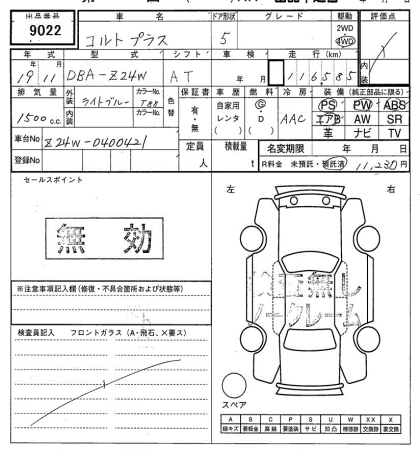 出品番号 車名 ドア形状 グレード 駆動 評価点
9022 コルトプラス 5 2WD 4WD
年式 型式 シフト 車検 走行(km) 内装
19年 11月 DBA-Z24W AT 年 月 116,585
排気量 外装 カラーNo. 色替 保証書 車歴 燃料 冷房 装備(純正部品に限る)
1500 c.c. ライトブルー T88 有・無 自家用 レンタ ( ) G・D ( ) AAC PS PW ABS
内装 カラーNo. エアB AW SR
革 ナビ TV
車台No Z24W-0400421 定員 人 積載量 t 名変期限 年 月 日
登録No R料金 未預託・預託済 11,230円
セールスポイント 左 右
無効
※注意事項記入欄(修復・不具合箇所および状態等)
検査員記入 フロントガラス(A・飛石、×要ス)
ノークレーム
スペア
A B C P S U W XX X
線キズ 要板金 腐蝕 要塗装 サビ 凹凸 補修跡 交換跡 要交換